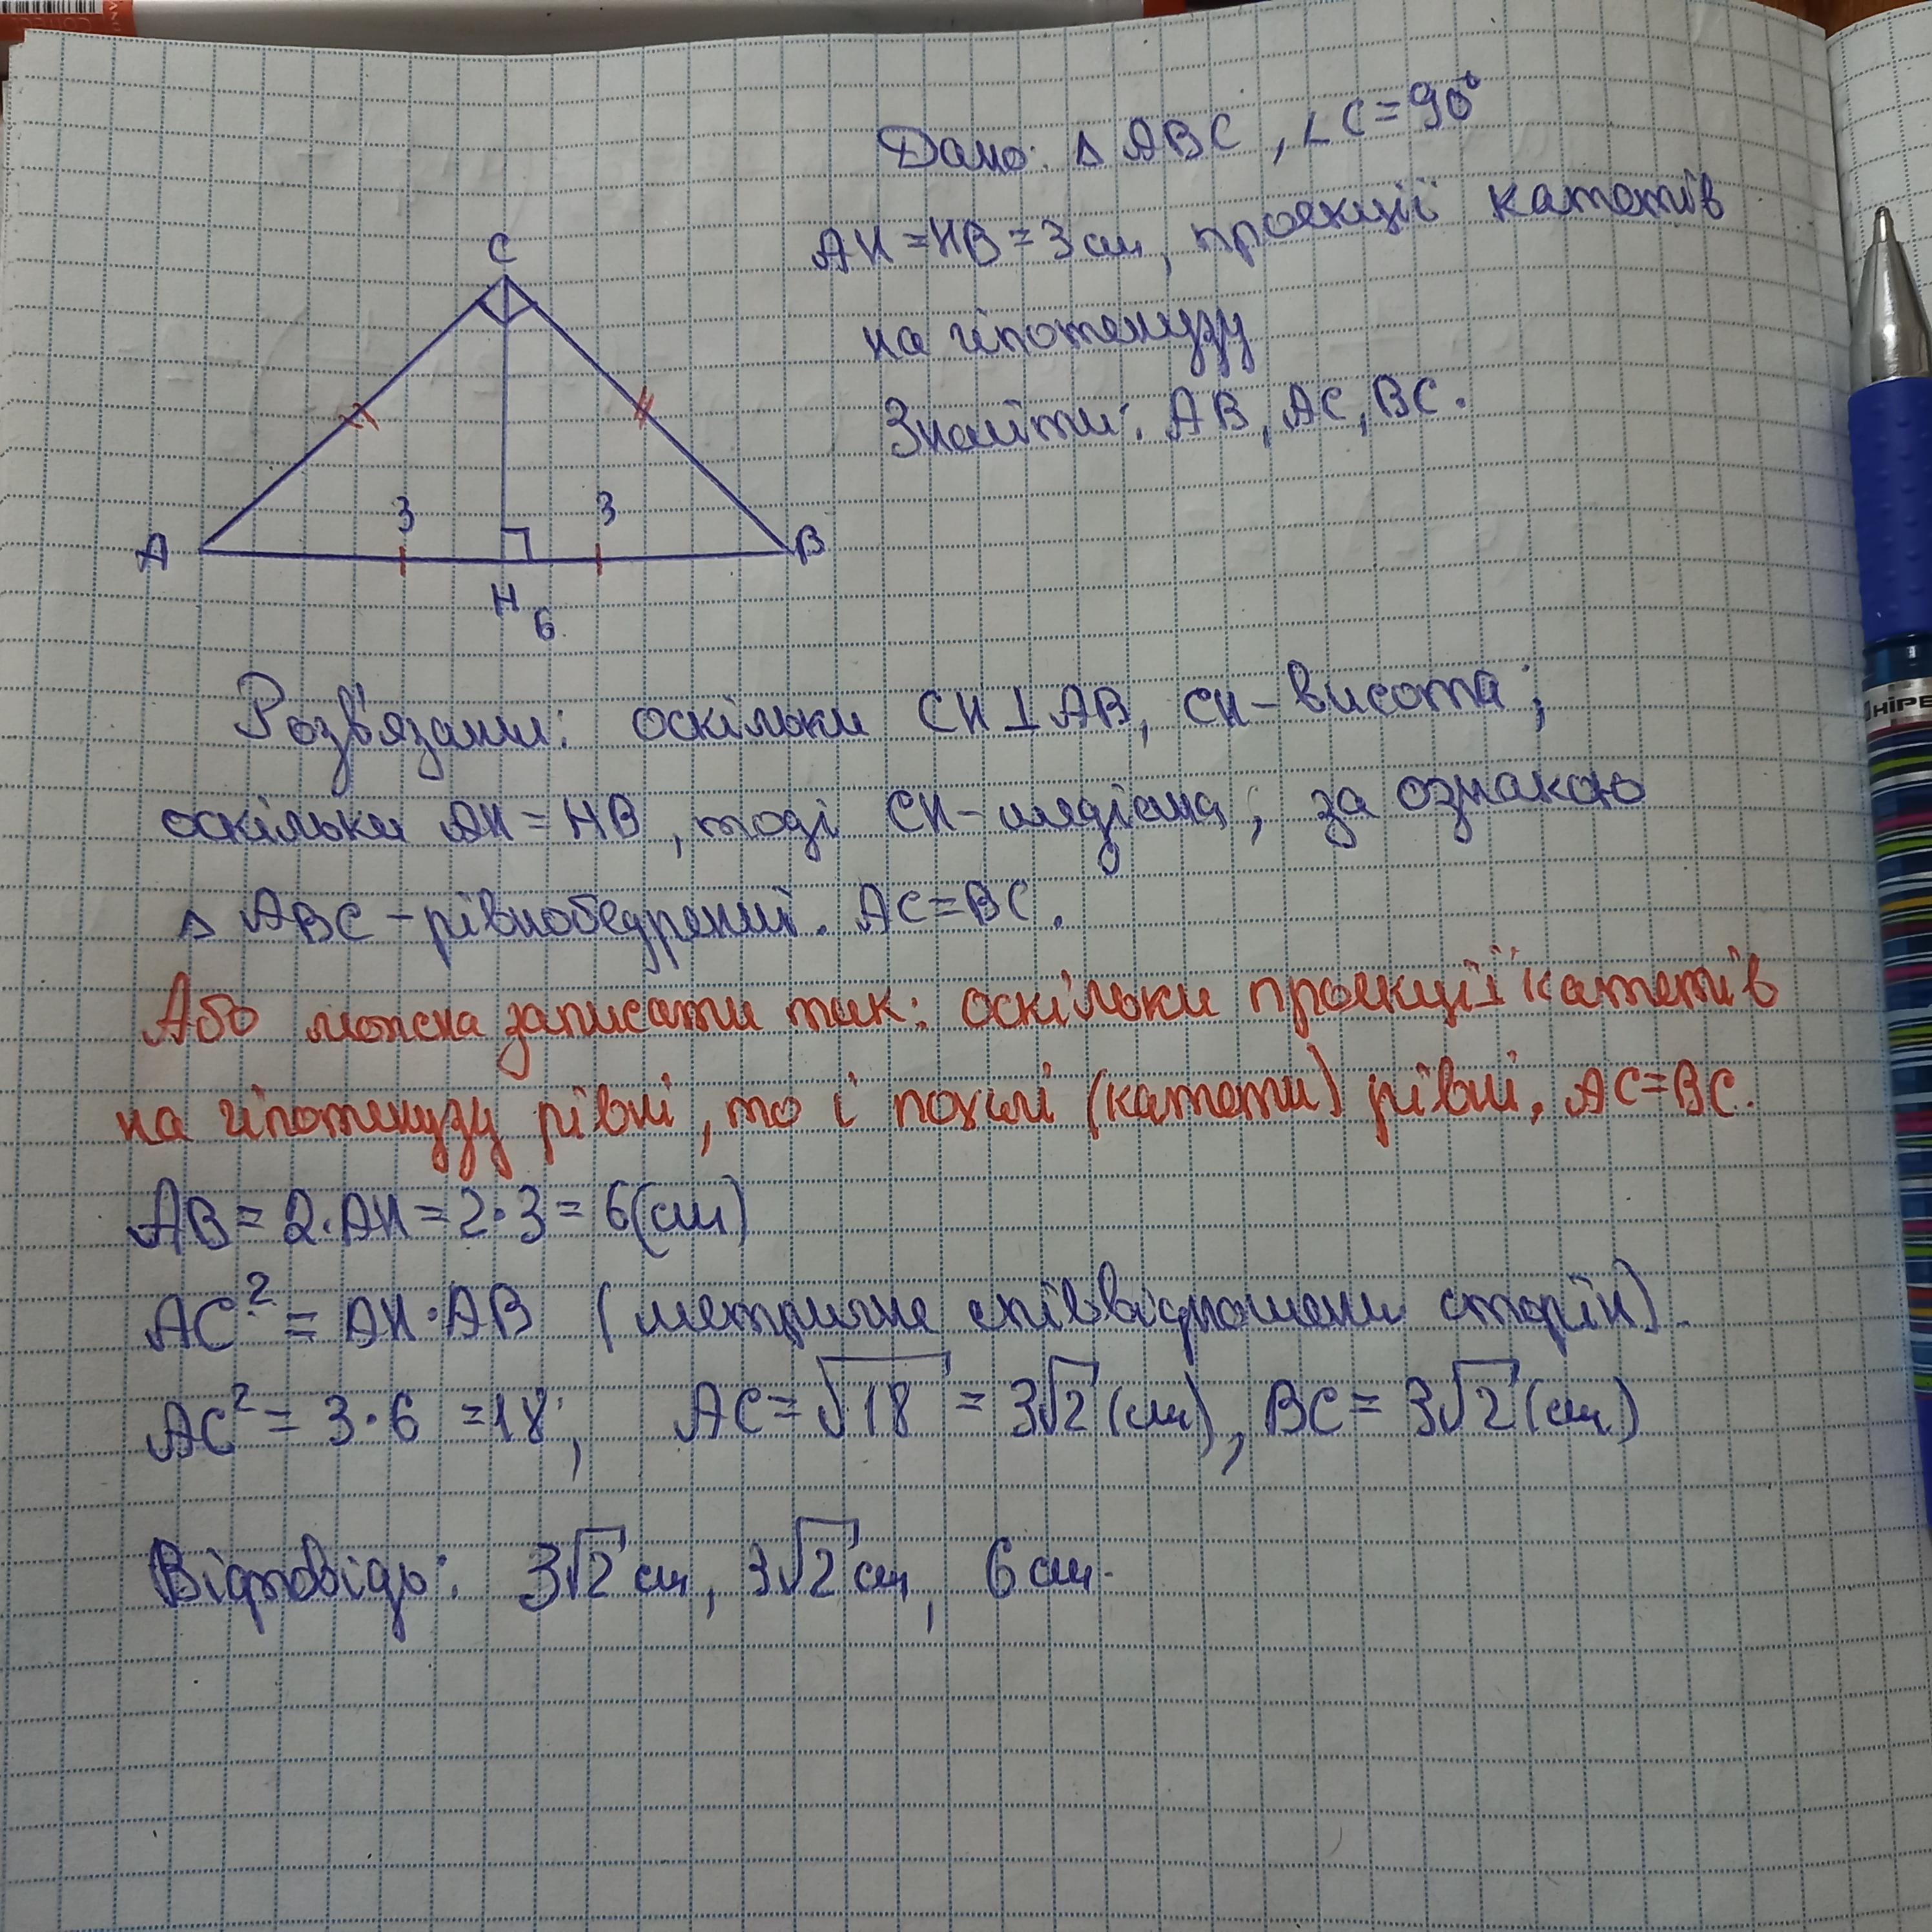 Дано: △ ABC, ∠C=90°
AH=HB=3см, проекції катетів
на гіпотенузу
Знайти: AB, AC, BC.
C
3
3
A
B
H
6
Розв'язання: оскільки CH⊥AB, CH-висота;
оскільки AH=HB, тоді CH-медіана; за ознакою
△ ABC-рівнобедрений. AC=BC.
Або можна записати так: оскільки проекції катетів
на гіпотенузу рівні, то і похилі (катети) рівні, AC=BC.
AB=2·AH=2·3=6(см)
AC²=AH·AB (метричне співвідношення сторін).
AC²=3·6=18; AC=√18=3√2(см), BC=3√2(см)
Відповідь: 3√2 см, 3√2 см, 6 см.